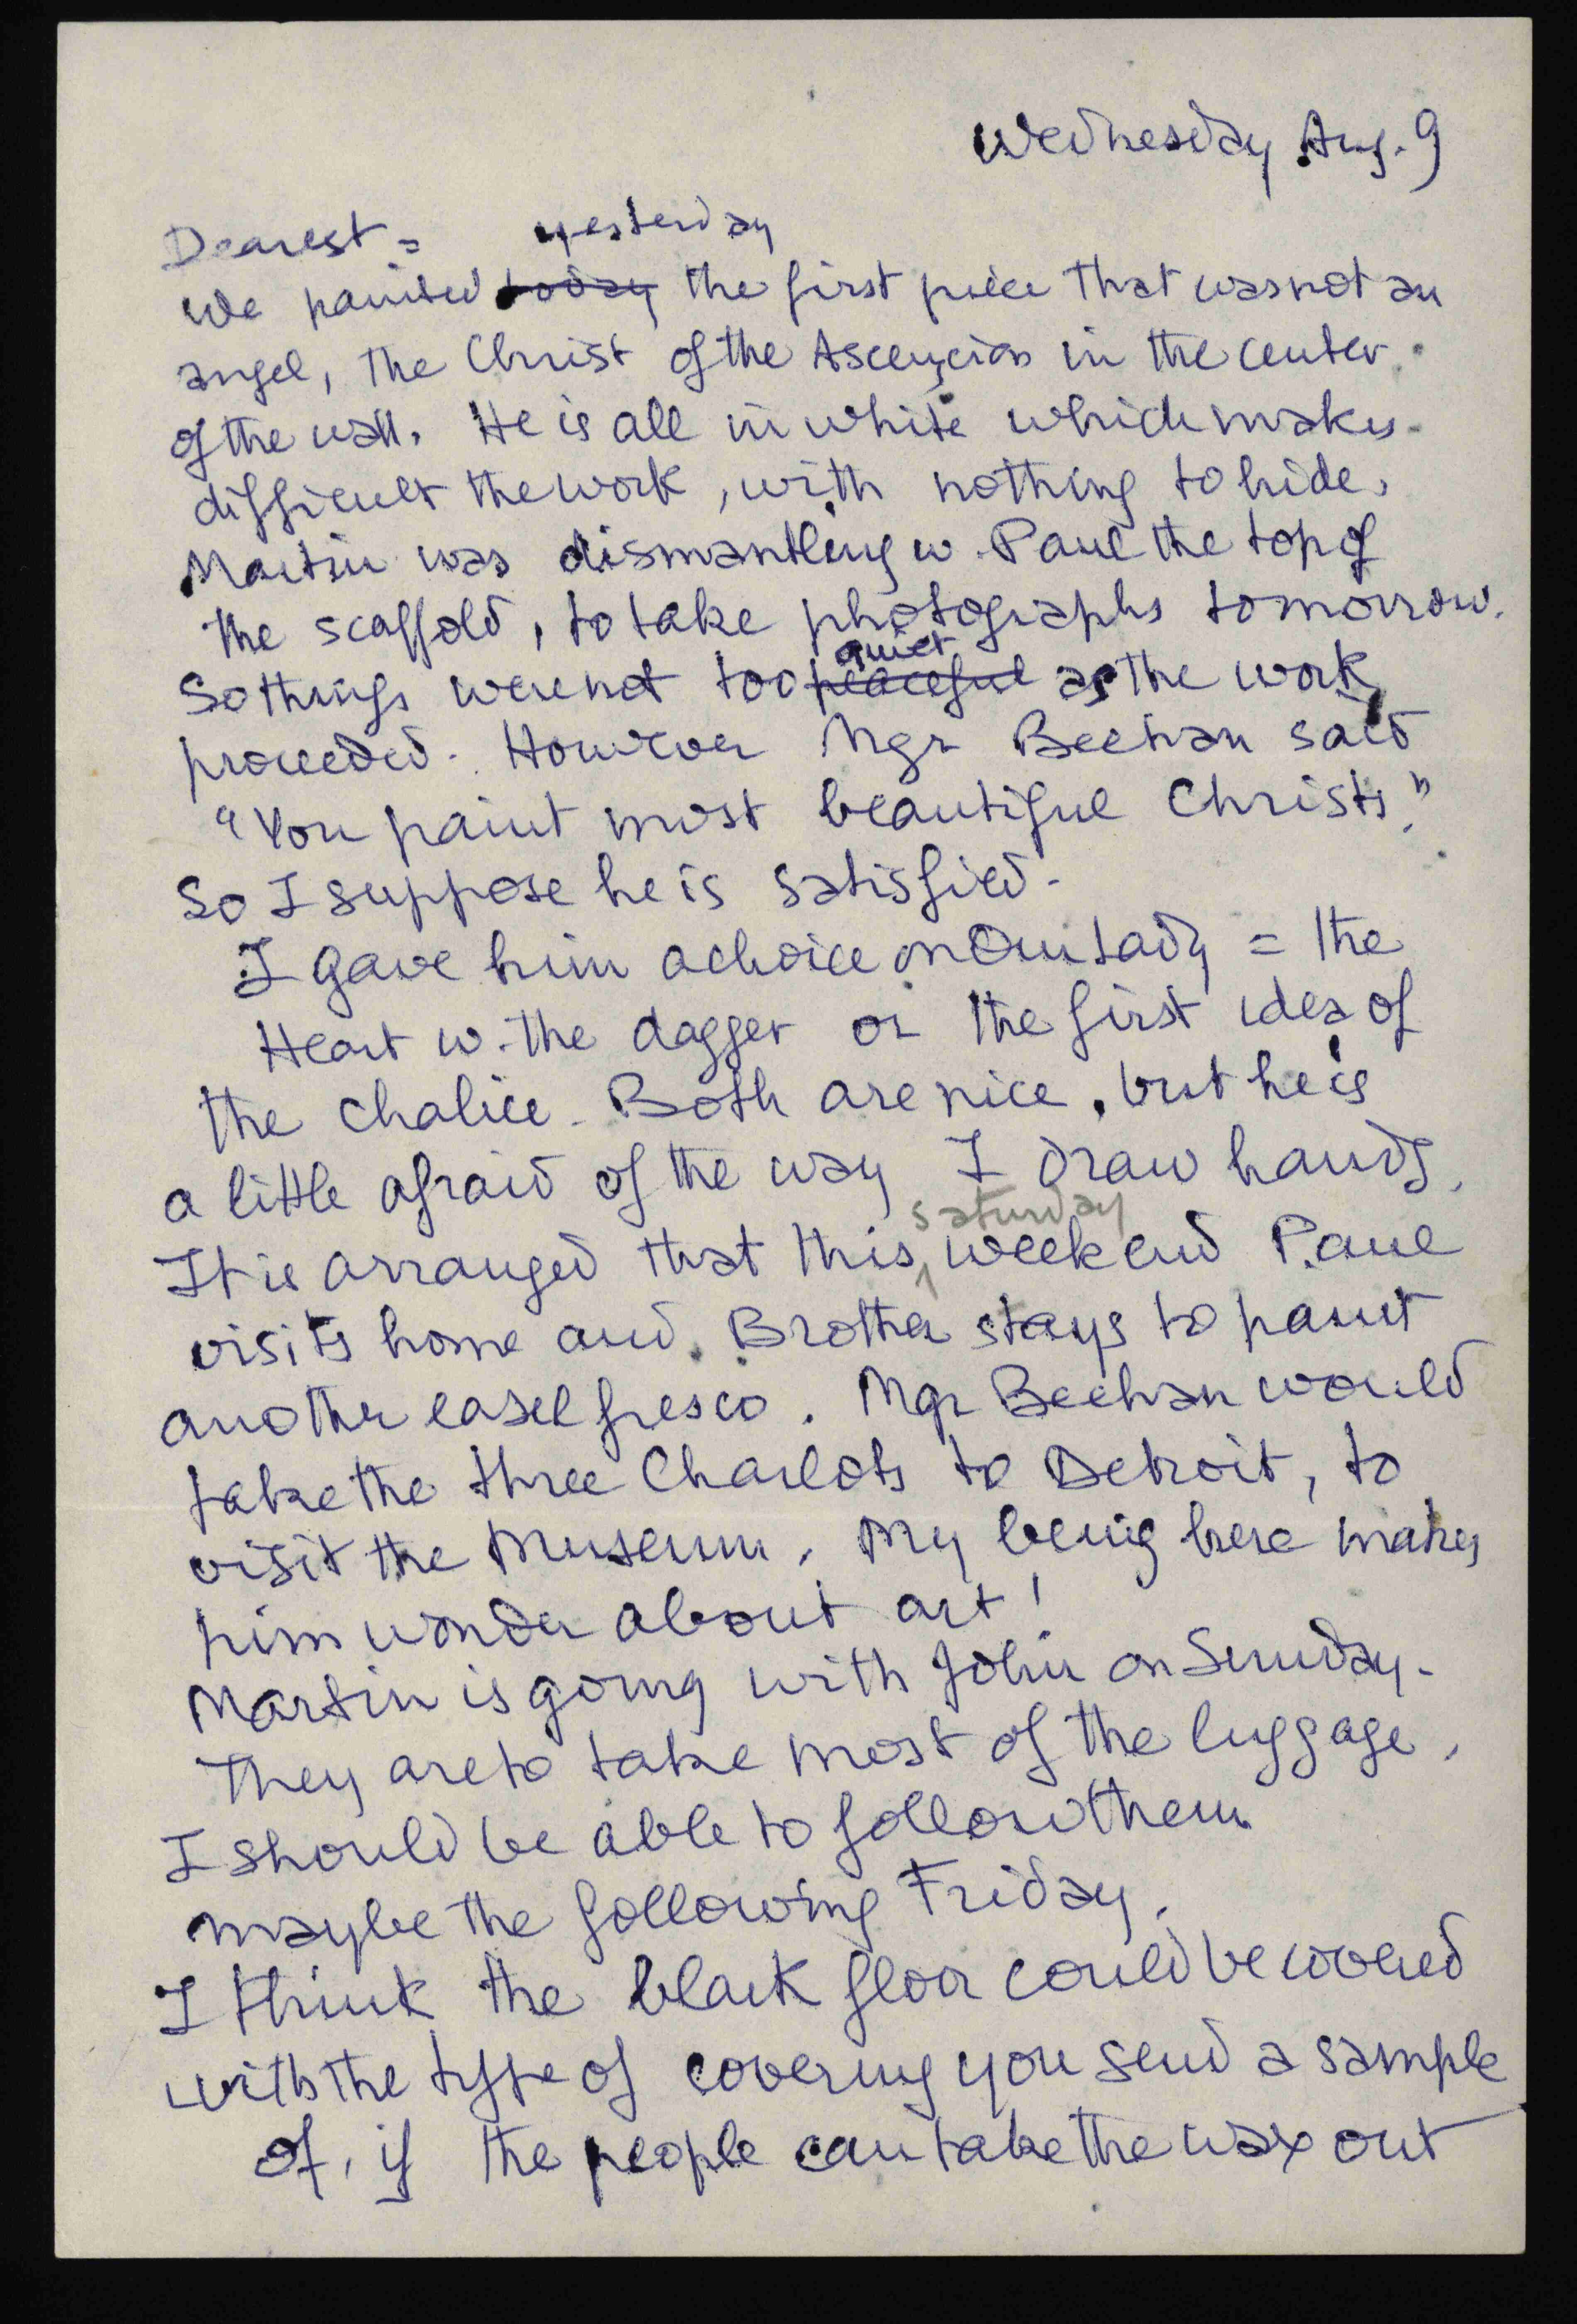 Wednesday Aug. 9
Dearest = yesterday
We painted today the first piece that was not an
angel, the Christ of the Ascencion in the center
of the wall. He is all in white which makes
difficult the work, with nothing to hide.
Martin was dismantling w. Paul the top of
the scaffold, to take photographs tomorrow.
quiet
So things were not too peaceful as the work
proceeded. However Mgr Beehan said
"You paint most beautiful Christs."
So I suppose he is satisfied.
I gave him a choice on Our Lady = the
Heart w. the dagger or the first idea of
the chalice. Both are nice, but he is
a little afraid of the way I draw hands.
saturday
It is arranged that this weekend Paul
visits home and Brother stays to paint
another easel fresco. Mgr Beehan would
take the three Charlots to Detroit, to
visit the Museum. My being here makes
him wonder about art!
Martin is going with John on Sunday.
They are to take most of the luggage.
I should be able to follow them
maybe the following Friday.
I think the black floor could be covered
with the type of covering you send a sample
of, if the people can take the wax out